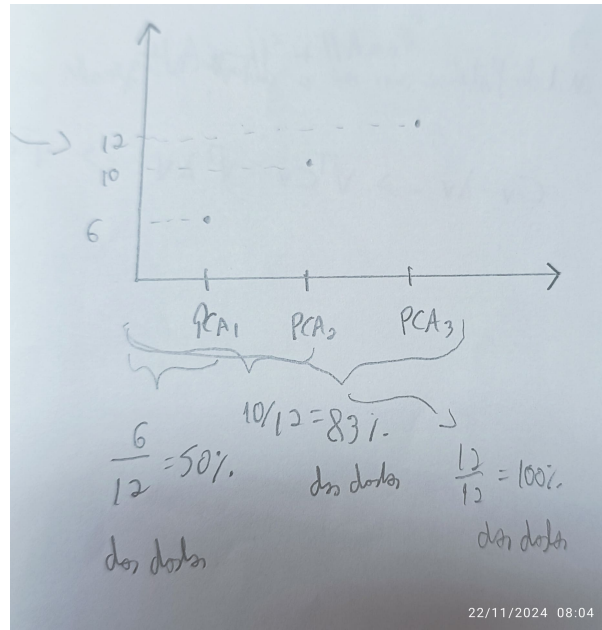 12
10
6
PCA1 PCA2 PCA3
6/12 = 50%.
dos dados
10/12 = 83%.
dos dados
12/12 = 100%.
dos dados
22/11/2024 08:04